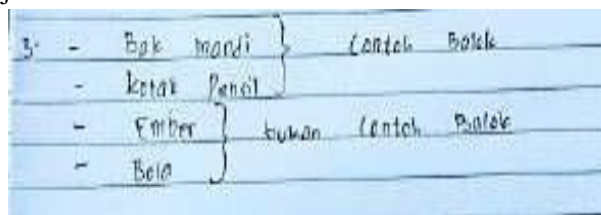 3. - Bak mandi } Contoh Balok
- kotak Pensil
- Ember } bukan Contoh Balok
- Bola